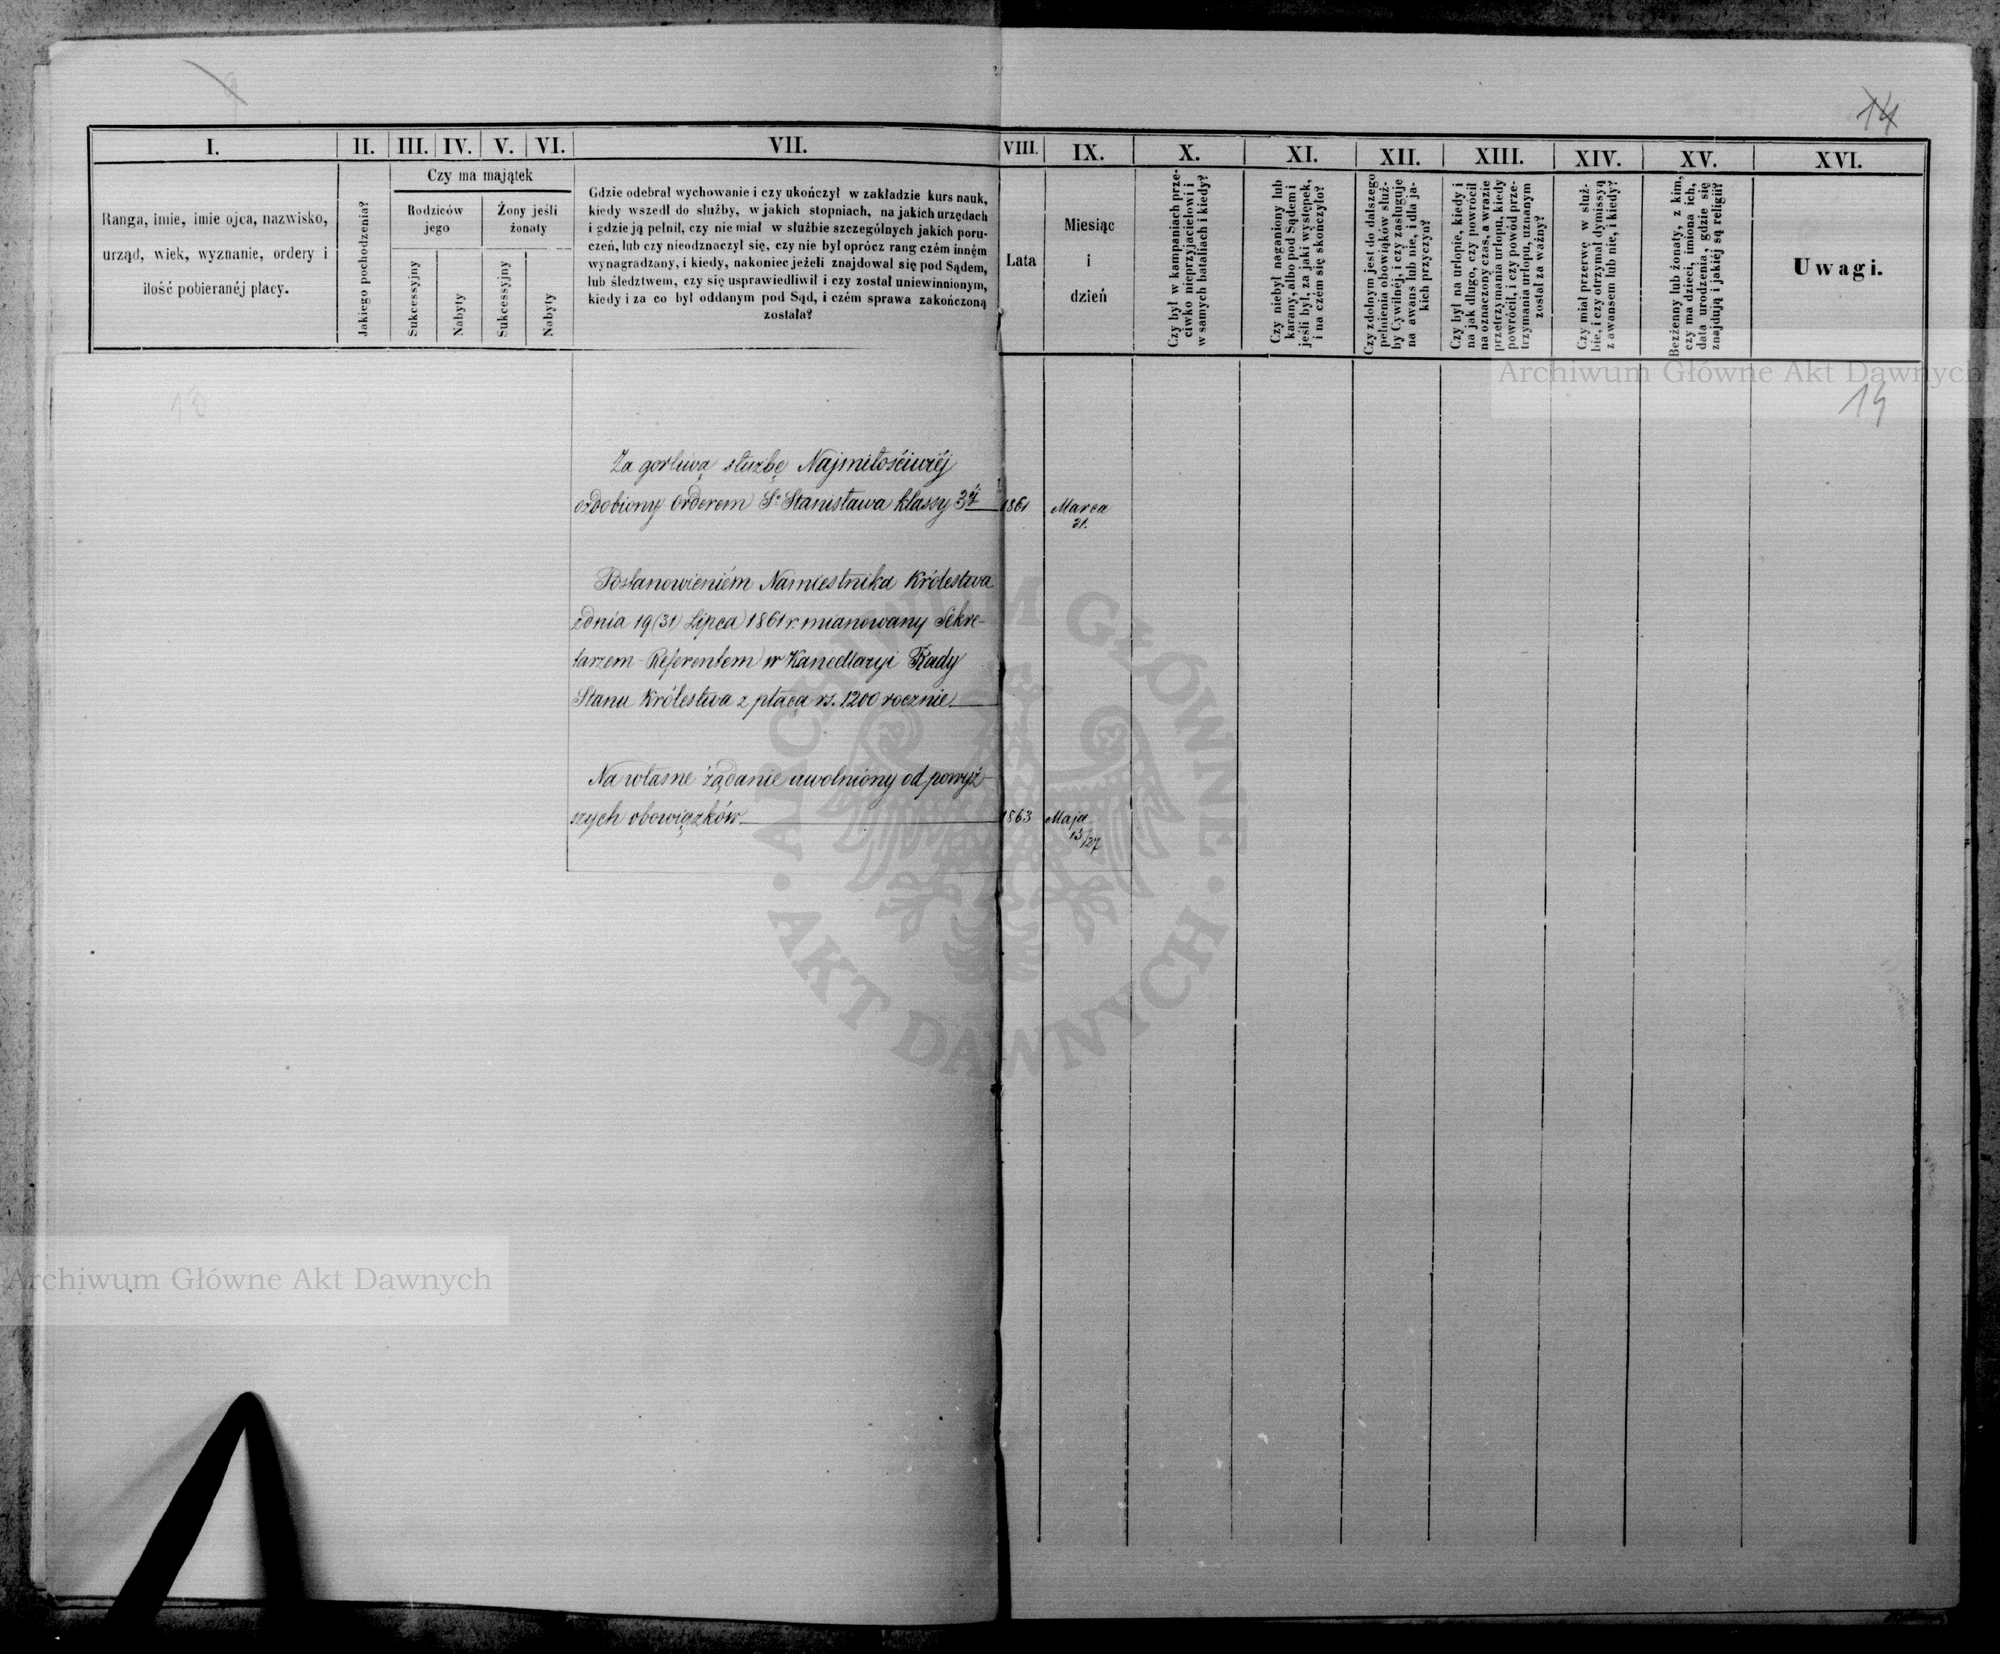 14
I. II. III. IV. V. VI. VII. VIII. IX. X. XI. XII. XIII. XIV. XV. XVI.
Ranga, imie, imie ojca, nazwisko,
urząd, wiek, wyznanie, ordery i
ilość pobieranéj płacy.
Jakiego pochodzenia?
Czy ma majątek
Rodziców
jego
Żony jeśli
żonaty
Sukcessyjny
Nabyty
Sukcessyjny
Nabyty
Gdzie odebrał wychowanie i czy ukończył w zakładzie kurs nauk,
kiedy wszedł do służby, w jakich stopniach, na jakich urzędach
i gdzie ją pełnił, czy nie miał w służbie szczególnych jakich poru-
czeń, lub czy nieodznaczył się, czy nie był oprócz rang czém inném
wynagradzany, i kiedy, nakoniec jeżeli znajdował się pod Sądem,
lub śledztwem, czy się usprawiedliwił i czy został uniewinnionym,
kiedy i za co był oddanym pod Sąd, i czém sprawa zakończoną
została?
Lata
Miesiąc
i
dzień
Czy był w kampaniach prze-
ciwko nieprzyjacielowi i
w samych bataliach i kiedy?
Czy niebył naganiony lub
karany, albo pod Sądem i
jeśli był, za jaki występek,
i na czém się skończyło?
Czy zdolnym jest do dalszego
pełnienia obowiąków służ-
by Cywilnéj, i czy zasługuje
na awans lub nie, i dla ja-
kich przyczyn?
Czy był na urlopie, kiedy i
na jak długo, czy powrócił
na oznaczony czas, a w razie
przetrzymania urlopu, kiedy
powrócił, i czy powód prze-
trzymania urlopu, uznanym
został za ważny?
Czy miał przerwę w służ-
bie, i czy otrzymał dymissyą
z awansem lub nie, i kiedy?
Bezżenny lub żonaty, z kim,
czy ma dzieci, imiona ich,
data urodzenia, gdzie się
znajdują i jakiéj są religii?
Uwagi.
Archiwum Główne Akt Dawnych
14
Za gorliwą służbę Najmiłościwiéj
ozdobiony orderem Sº Stanisława klassy 3éj 1861 Marca
31.
Postanowieniém Namiestnika Królestwa
z dnia 19 (31) Lipca 1861 r. mianowany Sekre-
tarzem-Referentem w Kancellaryi Rady
Stanu Królestwa z płacą rs. 1,200 rocznie
Na własne żądanie uwolniony od powyż-
szych obowiązków 1863 Maja
15/27
ARCHIWUM GŁÓWNE · AKT DAWNYCH ·
Archiwum Główne Akt Dawnych